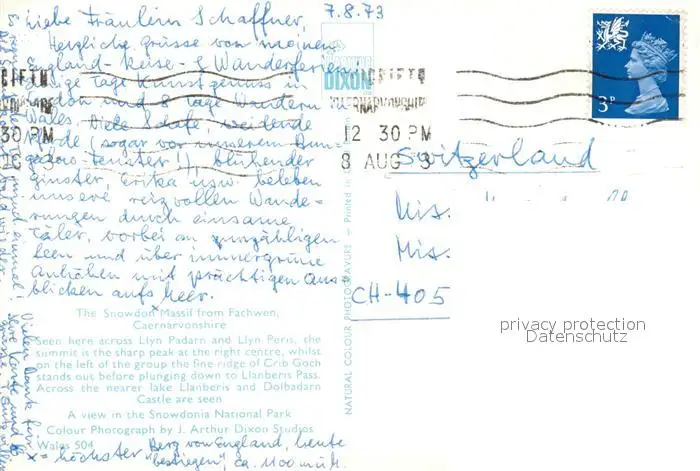 7.8.73
Liebe Fräulein Schaffner,
Herzliche Grüsse von meinen
England-Reise- & Wanderferien
einige Tage Kunstgenuss in
London und 8 Tage Wandern
Wales. Viele Schafe, weidende
Pferde (sogar vor unserem Bun-
galow-Fenster!), blühender
Ginster, Erika usw. beleben
unsere reizvollen Wande-
rungen durch einsame
Täler, vorbei an unzähligen
Seen und über immergrüne
Anhöhen mit prächtigen Aus-
blicken aufs Meer.
The Snowdon Massif from Fachwen,
Caernarvonshire
Seen here across Llyn Padarn and Llyn Peris, the
summit is the sharp peak at the right centre, whilst
on the left of the group the fine ridge of Crib Goch
stands out before plunging down to Llanberis Pass.
Across the nearer lake Llanberis and Dolbadarn
Castle are seen
A view in the Snowdonia National Park
Colour Photograph by J. Arthur Dixon Studios
Wales 504
x = höchster Berg von England, heute
"bestiegen", ca. 1100 m ü.M.
Vielen Dank für
DIXON
NATURAL COLOUR PHOTOGRAVURE - Printed in
CAERNARVONSHIRE
12 30 PM
8 AUG
30 PM
3P
Switzerland
CH-405
privacy protection
Datenschutz